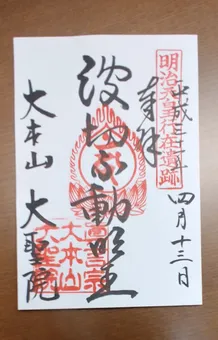 平成三十一年 四月十三日
明治天皇行在遺跡
奉拝
波切不動明王
大本山 大聖院
大本山